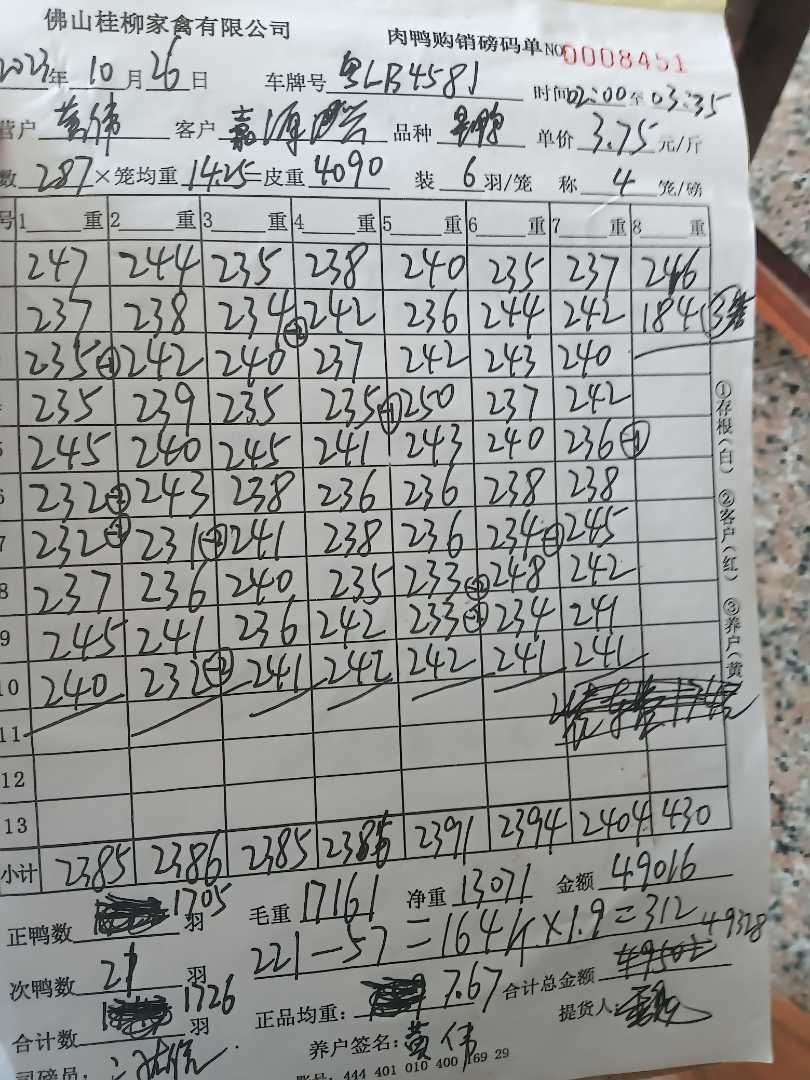 佛山桂柳家禽有限公司 肉鸭购销磅码单 NO 0008451
2023年 10 月 26 日 车牌号 粤LB4581 时间 02:00 至 03:35
营户 黄伟 客户 品种 单价 3.75 元/斤
数 287 ×笼均重 14.25 =皮重 4090 装 6 羽/笼 称 4 笼/磅
号 1 重 2 重 3 重 4 重 5 重 6 重 7 重 8 重
247 244 235 238 240 235 237 246
237 238 234 -2 242 236 244 242 184 (3笼)
235 -1 242 240 237 242 243 240
4 235 239 235 235 -1 250 237 242
5 245 240 245 241 243 240 236 -1
6 232 -2 243 238 236 236 238 238
7 232 -1 231 -3 241 238 236 234 -1 245
8 237 236 240 235 233 248 242
9 245 241 236 242 233 -1 234 241
10 240 232 -2 241 242 242 241 241
11
12
13
小计 2385 2386 2385 2386 2391 2394 2404 430
正鸭数 1705 羽 毛重 17161 净重 13071 金额 49016
次鸭数 21 羽 221-57=164斤×1.9=312 49328
合计数 1726 羽 正品均重: 7.67 合计总金额
司磅员: 养户签名: 黄伟 提货人:
账号: 444 401 010 400 169 29
①存根(白) ②客户(红) ③养户(黄